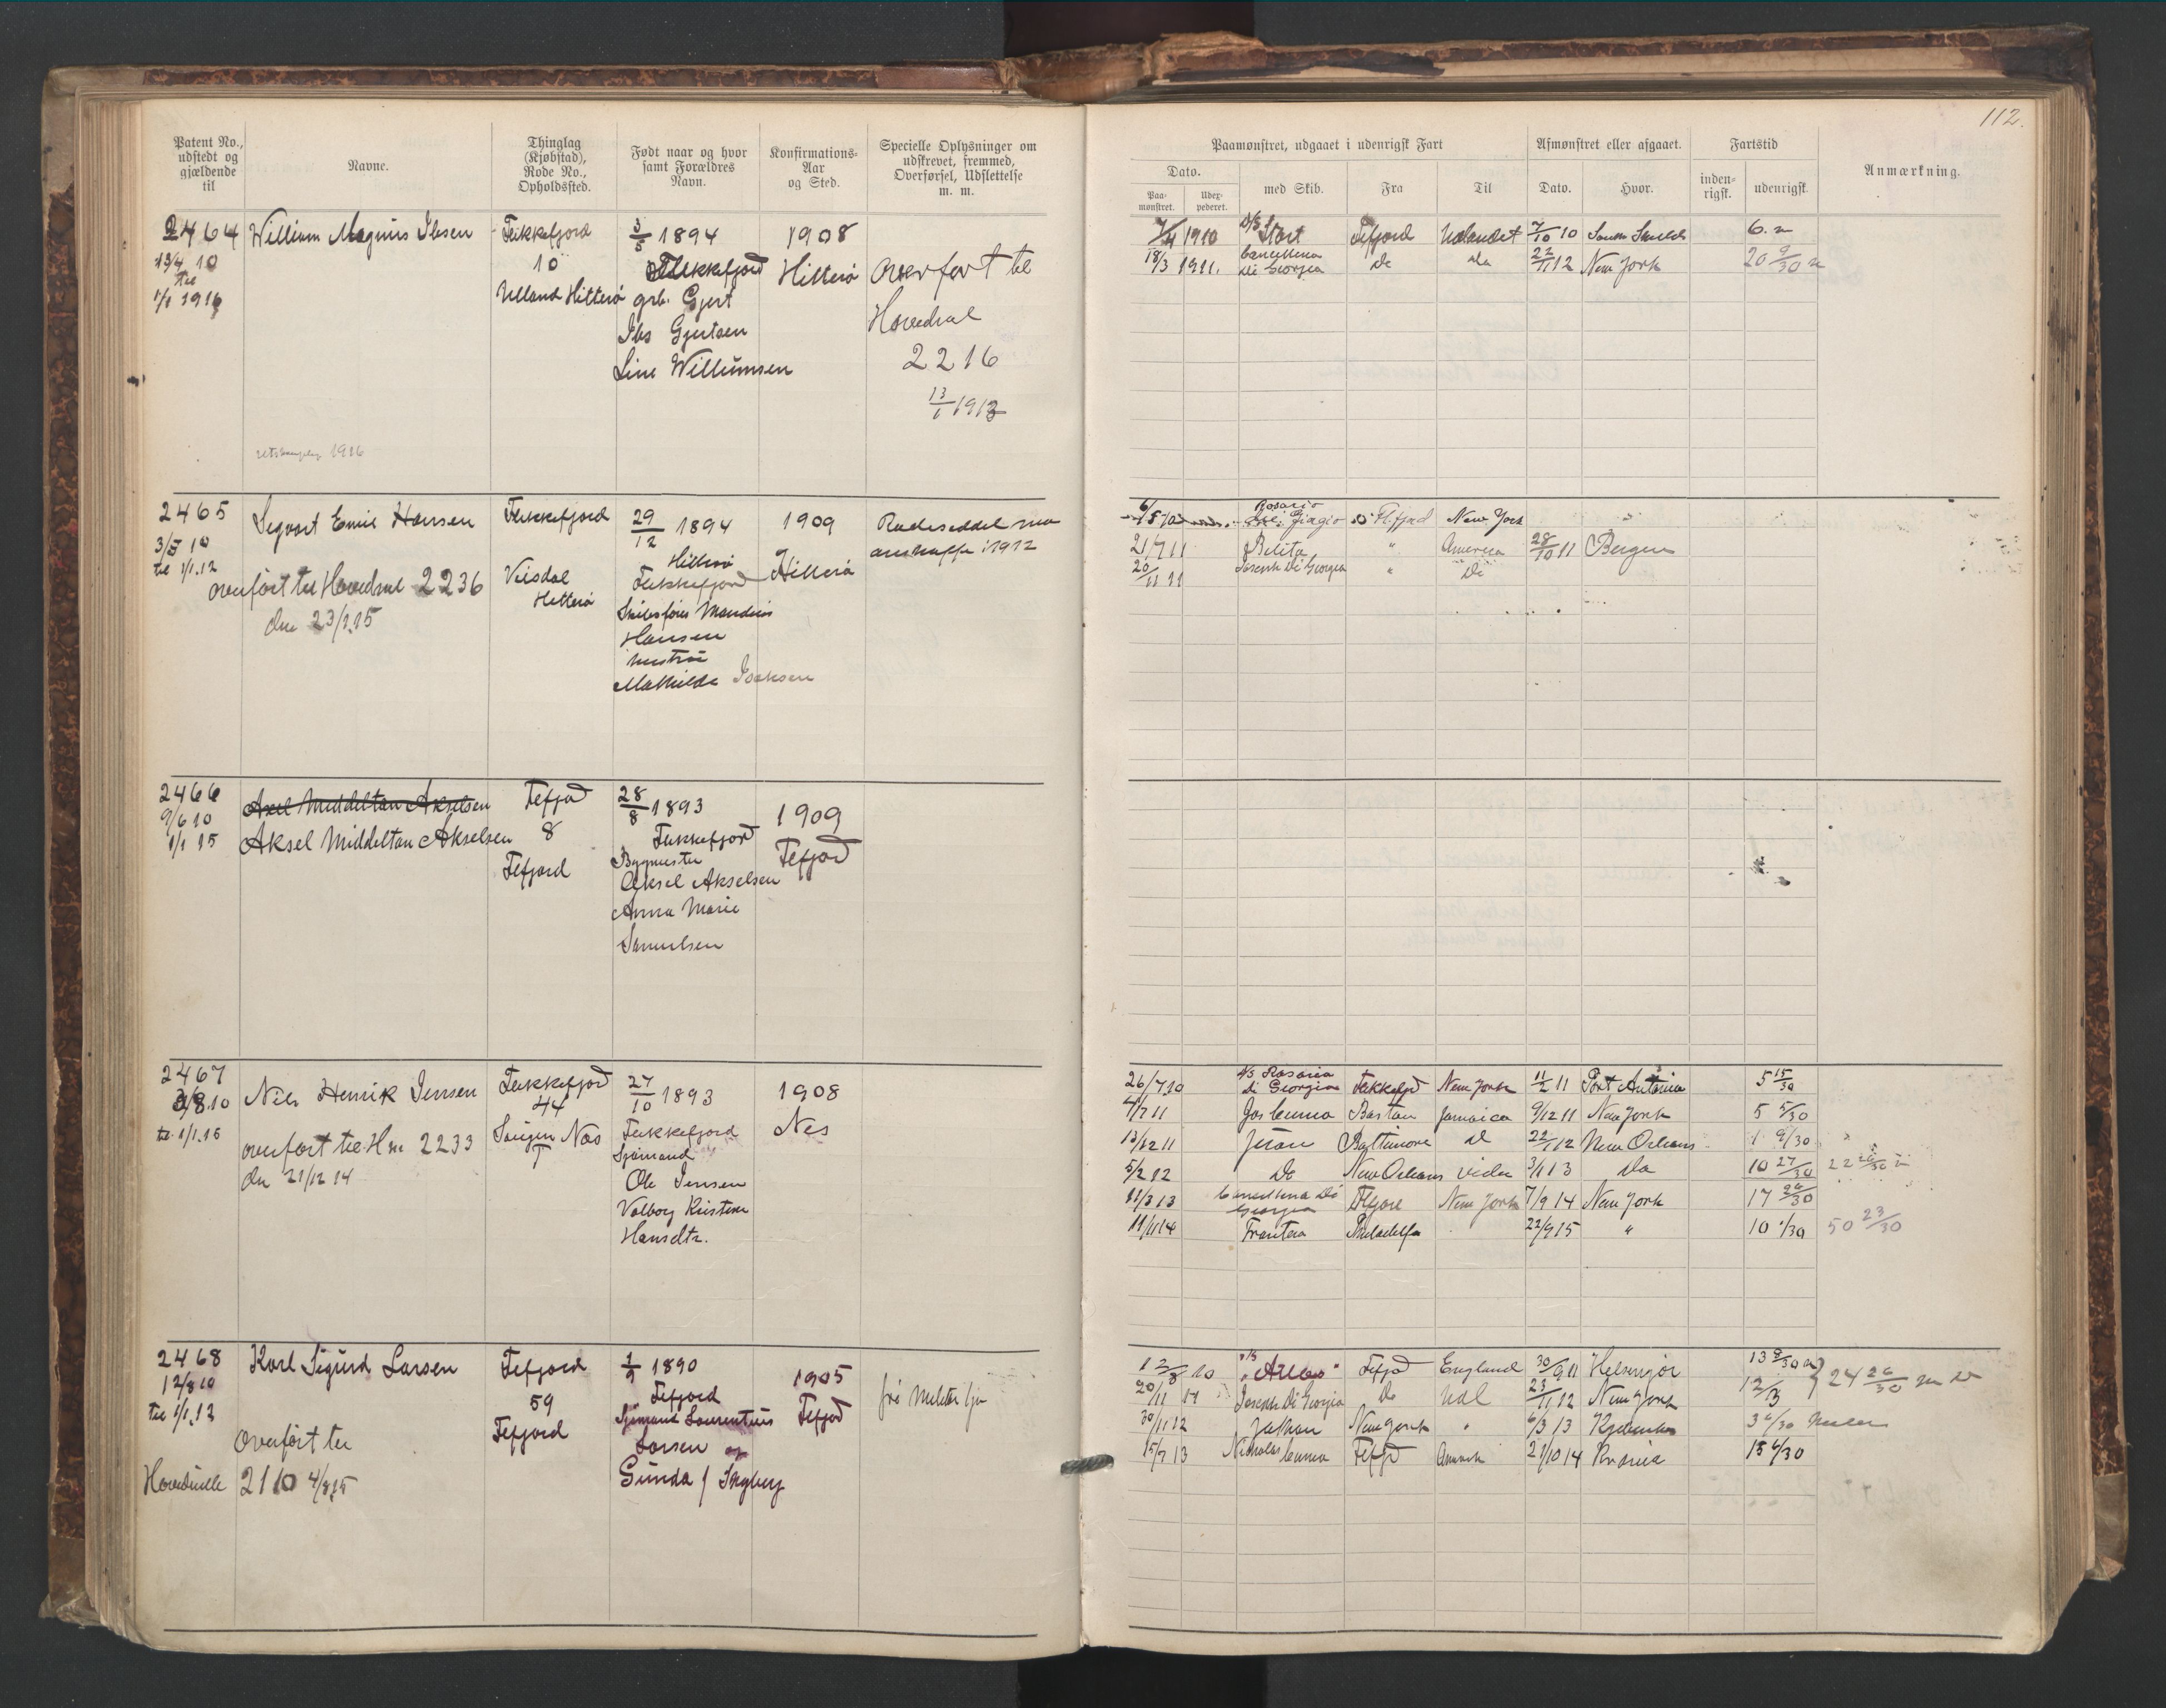 112.
Patent No., udstedt og gjældende til
Navne.
Thinglag (Kjøbstad), Rode No., Opholdssted.
Født naar og hvor samt Forældres Navn.
Konfirmations-Aar og Sted.
Specielle Oplysninger om udskrevet, fremmed, Overførsel, Udslettelse m. m.
Paamønstret, udgaaet i udenrigsk Fart
Afmønstret eller afgaaet.
Fartstid
Anmærkning.
Dato.
Paa-mønstret.
Udex-pederet.
med Skib.
Fra
Til
Dato.
Hvor.
inden-rigsk.
udenrigsk.
2464
13/4 10
til
1/1 1916
William Magnus Ibsen
Flekkefjord
10
Ulland Hitterø
3/5 1894
Flekkefjord
grb. Gjert
Ibs Gjertsen
Line Willumsen
1908
Hitterø
Overført til
Hovedrul
2216
13/1 1913
1916
7/4 1910 D/S Start Fefjord Udlandet 7/10 10 South Shields 6. m
18/3 1911. Di Georgia Do Do 22/11 12 New York 20 9/30 m
2465
3/5 10
til 1/1.12
Sigvart Emil Hansen
overført til Hovedrul 2236
den 23/1.15
Flekkefjord
Veisdal
Hitterø
29/12 1894
Hitterø
Flekkefjord
Skibsfører Mandius
Hansen
hustru
Mathilde Isaksen
1909
Hitterø
Rulleseddel maa
anskaffe i 1912
Rosario
Di Giorgio Fl.fjord New York
21/7 11 Belita " America 28/10 11 Bergen
20/11 11 Joseph Di Georgia " Do
2466
9/6 10
1/1 15
Axel Middeltan Akselsen
Aksel Middeltan Akselsen
Fefjord
8
Fefjord
28/8 1893
Flekkefjord
Bygmester
Aksel Akselsen
Anna Marie
Samuelsen
1909
Fefjord
2467
3/8 10
til 1/1.15
Nils Henrik Jensen
overført til H 2233
den 21/12 14
Flekkefjord
44
Nes
27/10 1893
Flekkefjord
Sjømand
Ole Jensen
Valborg Kristine
Hansdtr.
1908
Nes
26/7 10 D/S Rosario Di Georgia Flekkefjd New York 11/2 11 Port Antonio 5 15/30
4/7 11 Jos Cuneo Boston Jamaica 9/12 11 New York 5 5/30
13/12 11 Jeran Baltimore do 22/1 12 New Orleans 1 9/30
5/2 12 Do New Orleans videre 3/1 13 Do 10 27/30 22 26/30 m
11/3 13 Di Georgia Flfjord New York 7/9 14 New York 17 26/30
11/11 14 Frontera Philadelfia 22/9 15 " 10 1/30 50 23/30
2468
12/8 10
til 1/1.12
Karl Sigurd Larsen
Overført til
Hovedrulle 2110 4/8 15
Fefjord
59
Fefjord
1890
Fefjord
Sjømand Laurentius
Larsen og
Gunda f Ingberg
1905
Fefjord
12/8 10 Fefjd England 30/9 11 Helsingør
20/11 11 Joseph Di Georgia Do Udl 23/11 12 New York 24 26/30
30/11 12 New York " 6/3 13 Kjøbenhavn 3 6/30
15/7 13 Nicholas Cuneo Fefjd 21/10 14 Kr.ania 15 6/30